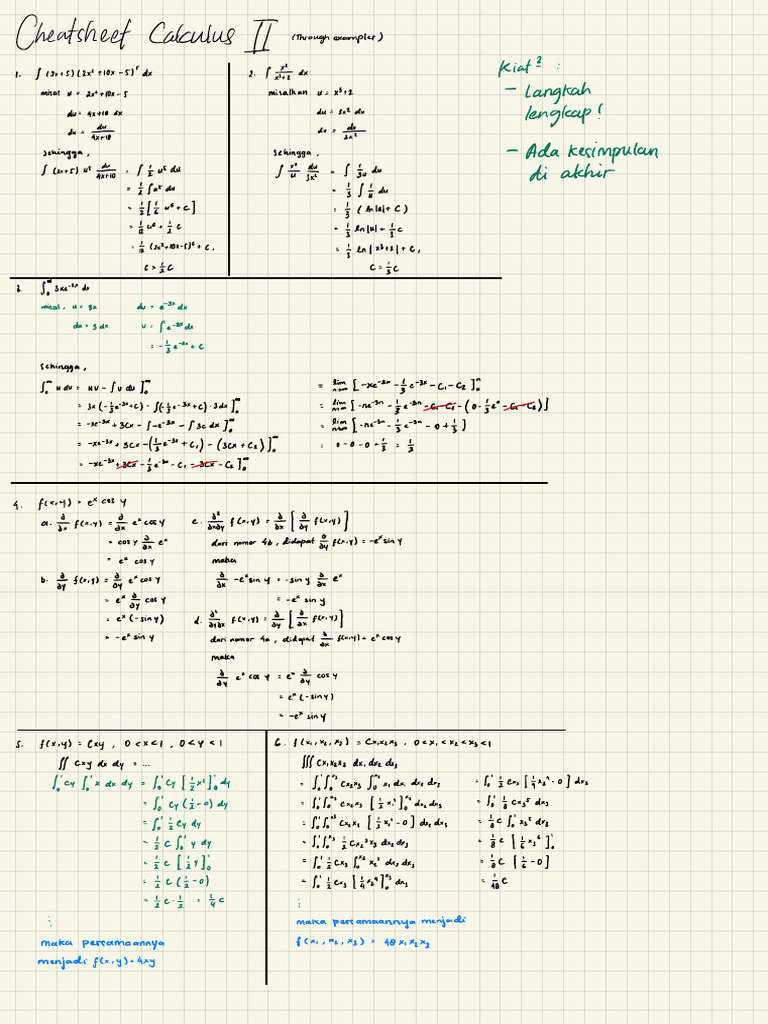 Cheatsheet Calculus II (Through examples)
Kiat² :
- Langkah
lengkap!
- Ada kesimpulan
di akhir
1. ∫ (2x+5)(2x²+10x-5)⁵ dx
misal u = 2x²+10x-5
du = 4x+10 dx
dx = du/4x+10
sehingga,
∫ (2x+5) u⁵ du/4x+10 = ∫ 1/2 u⁵ du
= 1/2 ∫ u⁵ du
= 1/2 [1/6 u⁶ + C]
= 1/12 u⁶ + 1/2 C
= 1/12 (2x²+10x-5)⁶ + C,
C = 1/2 C
2. ∫ x²/x³+2 dx
misalkan u = x³+2
du = 3x² dx
dx = du/3x²
sehingga,
∫ x²/u du/3x² = ∫ 1/3u du
= 1/3 ∫ 1/u du
= 1/3 (ln|u| + C)
= 1/3 ln|u| + 1/3 C
= 1/3 ln|x³+2| + C,
C = 1/3 C
3. ∫₀^∞ 3xe^-3x dx
misal. u = 3x dv = e^-3x dx
du = 3 dx v = ∫ e^-3x dx
= -1/3 e^-3x + C
sehingga,
∫₀^∞ u dv = uv - ∫ v du ]₀^∞
= 3x (-1/3 e^-3x + C) - ∫(-1/3 e^-3x + C) · 3 dx ]₀^∞
= -xe^-3x + 3Cx - ∫ -e^-3x - ∫ 3C dx ]₀^∞
= -xe^-3x + 3Cx - (1/3 e^-3x + C₁) - (3Cx + C₂) ]₀^∞
= -xe^-3x + 3Cx - 1/3 e^-3x - C₁ - 3Cx - C₂ ]₀^∞
= lim n→∞ [ -xe^-3x - 1/3 e^-3x - C₁ - C₂ ]₀^n
= lim n→∞ [ -ne^-3n - 1/3 e^-3n - C₁ - C₂ - (0 - 1/3 e⁰ - C₁ - C₂) ]
= lim n→∞ [ -ne^-3n - 1/3 e^-3n - 0 + 1/3 ]
= 0 - 0 - 0 + 1/3 = 1/3
4. f(x,y) = eˣ cos y
a. ∂/∂x f(x,y) = ∂/∂x eˣ cos y
= cos y ∂/∂x eˣ
= eˣ cos y
b. ∂/∂y f(x,y) = ∂/∂y eˣ cos y
= eˣ ∂/∂y cos y
= eˣ (-sin y)
= -eˣ sin y
c. ∂²/∂x∂y f(x,y) = ∂/∂x [ ∂/∂y f(x,y) ]
dari nomor 4b, didapat ∂/∂y f(x,y) = -eˣ sin y
maka
∂/∂x -eˣ sin y = -sin y ∂/∂x eˣ
= -eˣ sin y
d. ∂²/∂y∂x f(x,y) = ∂/∂y [ ∂/∂x f(x,y) ]
dari nomor 4a, didapat ∂/∂x f(x,y) = eˣ cos y
maka
∂/∂y eˣ cos y = eˣ ∂/∂y cos y
= eˣ (-sin y)
= -eˣ sin y
5. f(x,y) = Cxy , 0<x<1 , 0<y<1
∬ Cxy dx dy = ...
∫₀¹ Cy ∫₀¹ x dx dy = ∫₀¹ Cy [1/2 x²]₀¹ dy
= ∫₀¹ Cy (1/2 - 0) dy
= ∫₀¹ 1/2 Cy dy
= 1/2 C ∫₀¹ y dy
= 1/2 C [1/2 y]₀¹
= 1/2 C (1/2 - 0)
= 1/2 C · 1/2 = 1/4 C
⋮
maka persamaannya
menjadi f(x,y) = 4xy
6. f(x₁,x₂,x₃) = Cx₁x₂x₃ , 0<x₁<x₂<x₃<1
∭ Cx₁x₂x₃ dx₁ dx₂ dx₃
= ∫₀¹ ∫₀^x₃ Cx₂x₃ ∫₀^x₂ x₁ dx₁ dx₂ dx₃
= ∫₀¹ ∫₀^x₃ Cx₂x₃ [1/2 x₁²]₀^x₂ dx₂ dx₃
= ∫₀¹ ∫₀^x₃ Cx₂x₃ [1/2 x₂² - 0] dx₂ dx₃
= ∫₀¹ ∫₀^x₃ 1/2 Cx₂³x₃ dx₂ dx₃
= ∫₀¹ 1/2 Cx₃ ∫₀^x₃ x₂³ dx₂ dx₃
= ∫₀¹ 1/2 Cx₃ [1/4 x₂⁴]₀^x₃ dx₃
= ∫₀¹ 1/2 Cx₃ [1/4 x₃⁴ - 0] dx₃
= ∫₀¹ 1/8 Cx₃⁵ dx₃
= 1/8 C ∫₀¹ x₃⁵ dx₃
= 1/8 C [1/6 x₃⁶]₀¹
= 1/8 C [1/6 - 0]
= 1/48 C
⋮
maka persamaannya menjadi
f(x₁, x₂, x₃) = 48 x₁x₂x₃